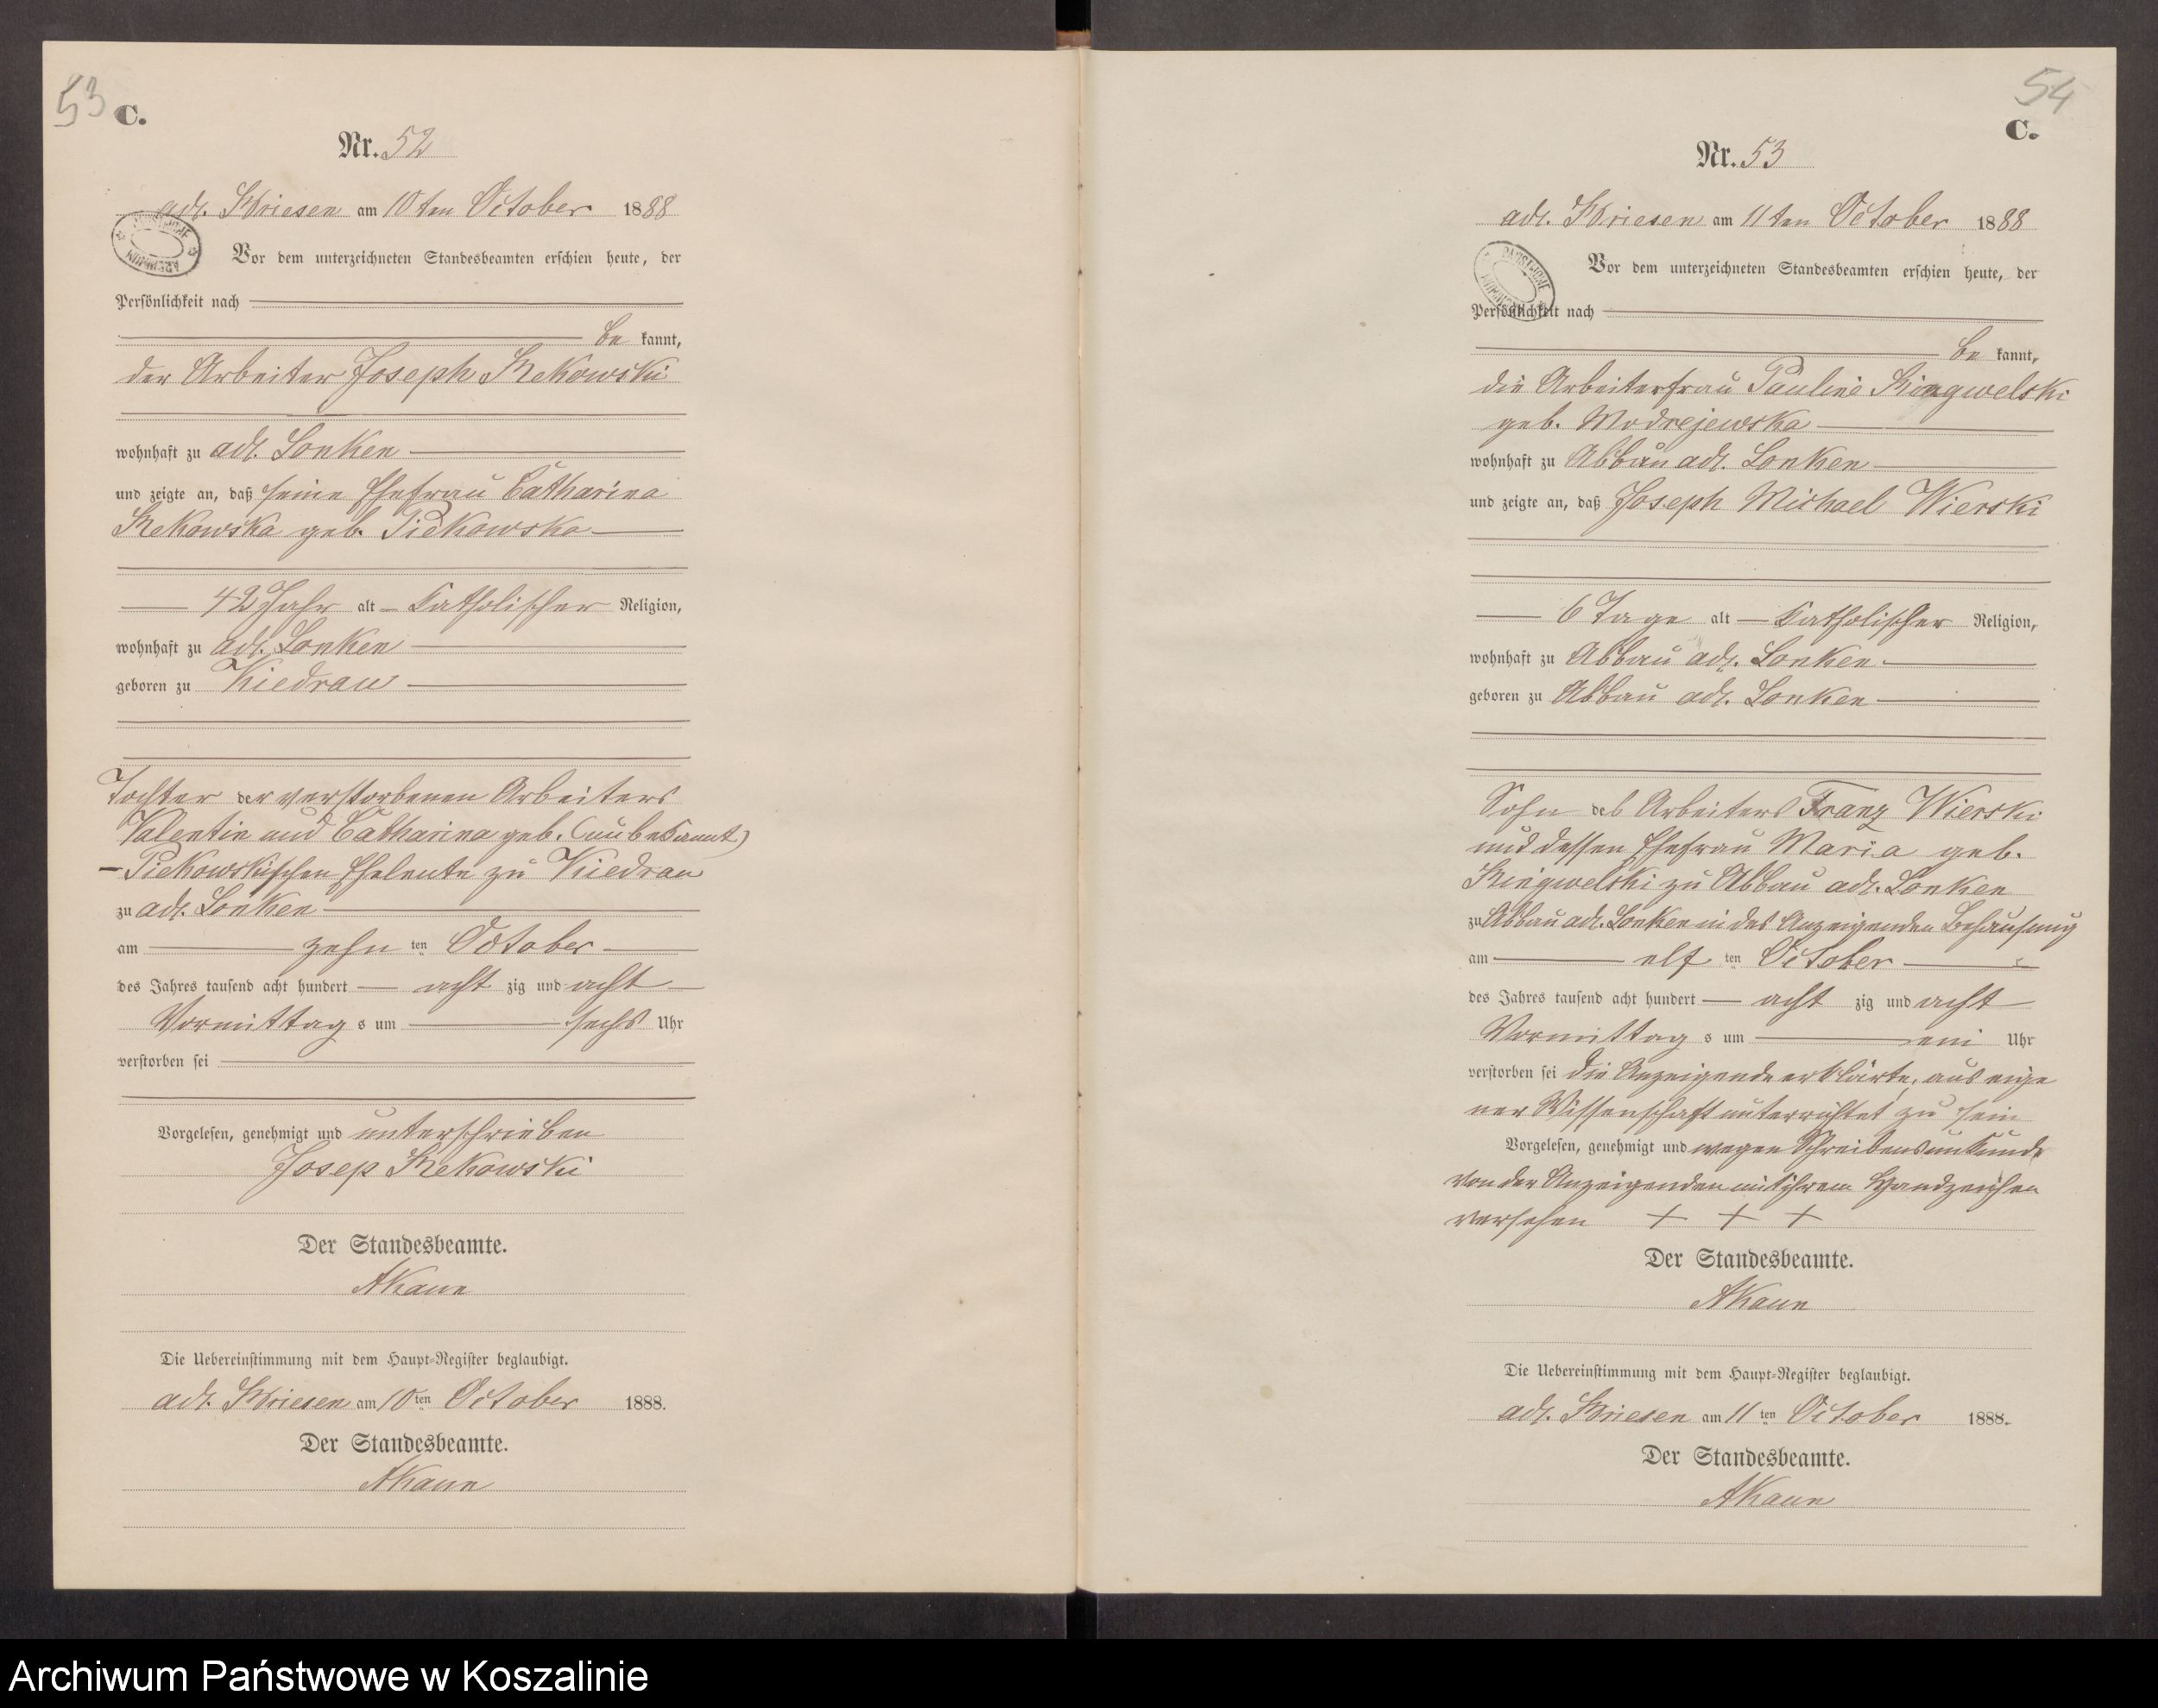 53 C.
Nr. 52
adl. Briesen am 10ten October 1888
Vor dem unterzeichneten Standesbeamten erschien heute, der
Persönlichkeit nach
be kannt,
der Arbeiter Joseph Rekowski
wohnhaft zu adl. Lonken
und zeigte an, daß seine Ehefrau Catharina
Rekowska geb. Piekowska
42 Jahr alt Katholischer Religion,
wohnhaft zu adl. Lonken
geboren zu Kiedrau
Tochter der verstorbenen Arbeiters
Valentin und Catharina geb. (unbekannt)
Piekowskischen Eheleute zu Kiedrau
zu adl. Lonken
am zehn ten October
des Jahres tausend acht hundert acht zig und acht
Vormittag s um sechs Uhr
verstorben sei
Vorgelesen, genehmigt und unterschrieben
Josep Rekowski
Der Standesbeamte.
Die Uebereinstimmung mit dem Haupt-Register beglaubigt.
adl. Briesen am 10ten October 1888.
Der Standesbeamte.
54
C.
Nr. 53
adl. Briesen am 11ten October 1888
Vor dem unterzeichneten Standesbeamten erschien heute, der
Persönlichkeit nach
be kannt,
die Arbeiterfrau Pauline
geb. Modrejewska
wohnhaft zu Abbau adl. Lonken
und zeigte an, daß Joseph Michael Wierski
6 Tage alt Katholischer Religion,
wohnhaft zu Abbau adl. Lonken
geboren zu Abbau adl. Lonken
Sohn des Arbeiters Franz Wierski
und dessen Ehefrau Maria geb.
zu Abbau adl. Lonken
zu Abbau adl. Lonken in des Anzeigenden Behausung
am elf ten October
des Jahres tausend acht hundert acht zig und acht
Vormittag s um ein Uhr
verstorben sei die Anzeigende erklärte, aus eige
ner Wissenschaft unterrichtet zu sein
Vorgelesen, genehmigt und wegen Schreibensunkunde
von der Anzeigenden mit ihrem Handzeichen
versehen + + +
Der Standesbeamte.
Die Uebereinstimmung mit dem Haupt-Register beglaubigt.
adl. Briesen am 11ten October 1888.
Der Standesbeamte.
Archiwum Państwowe w Koszalinie